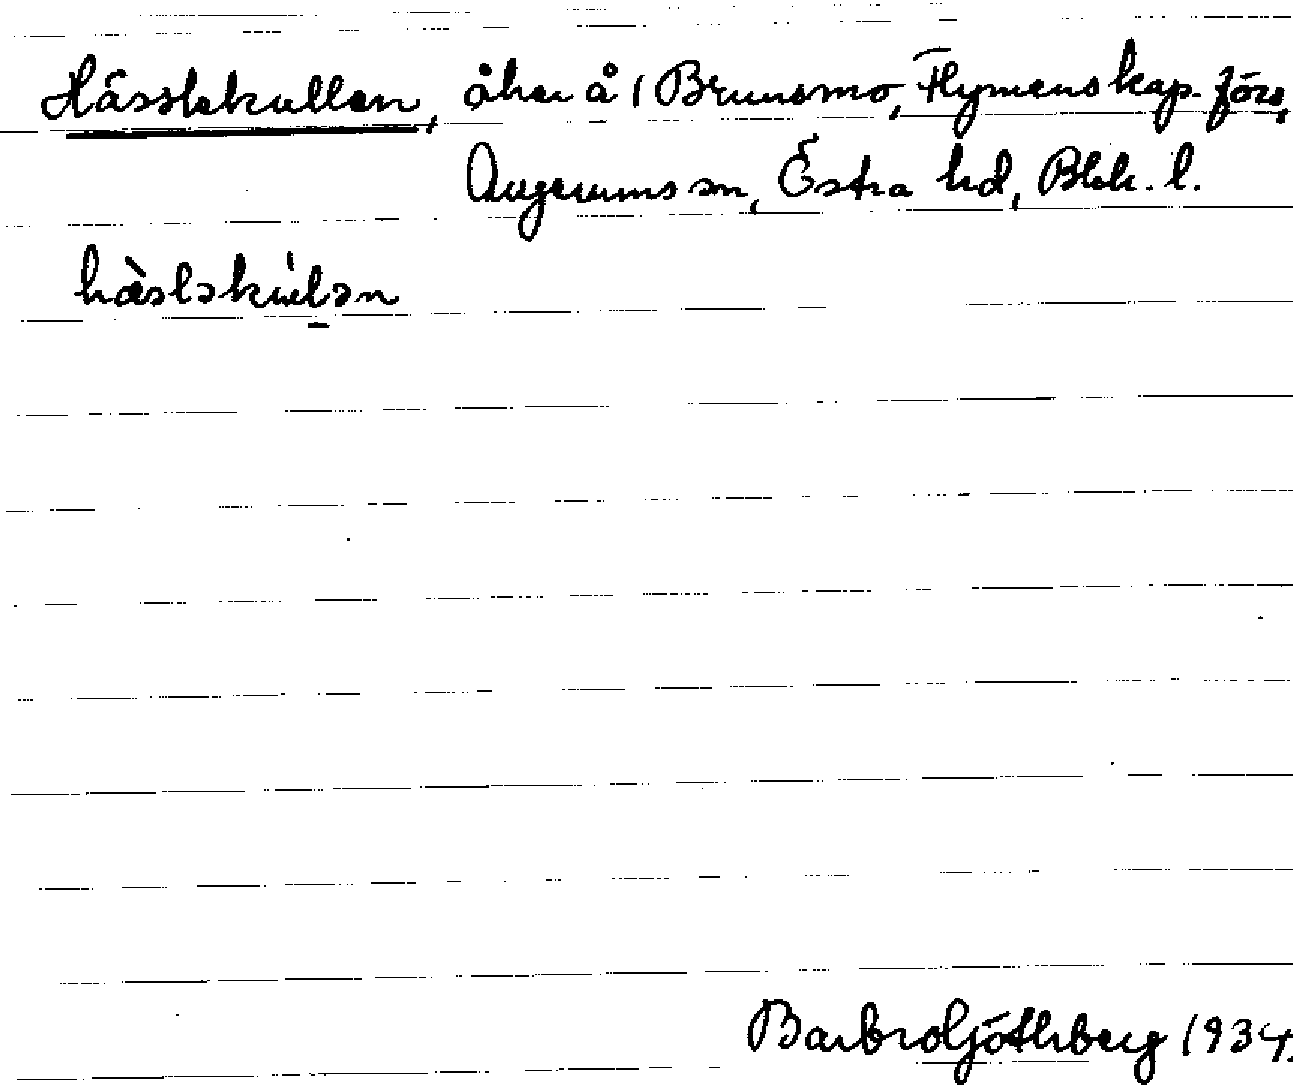 Hässlekullen, åker å 1 Brunsmo, Flymens kap. förs,
Augerums sn, Östra hd, Blek. l.
hàsləkúlən
Barbro Göthberg 1934.